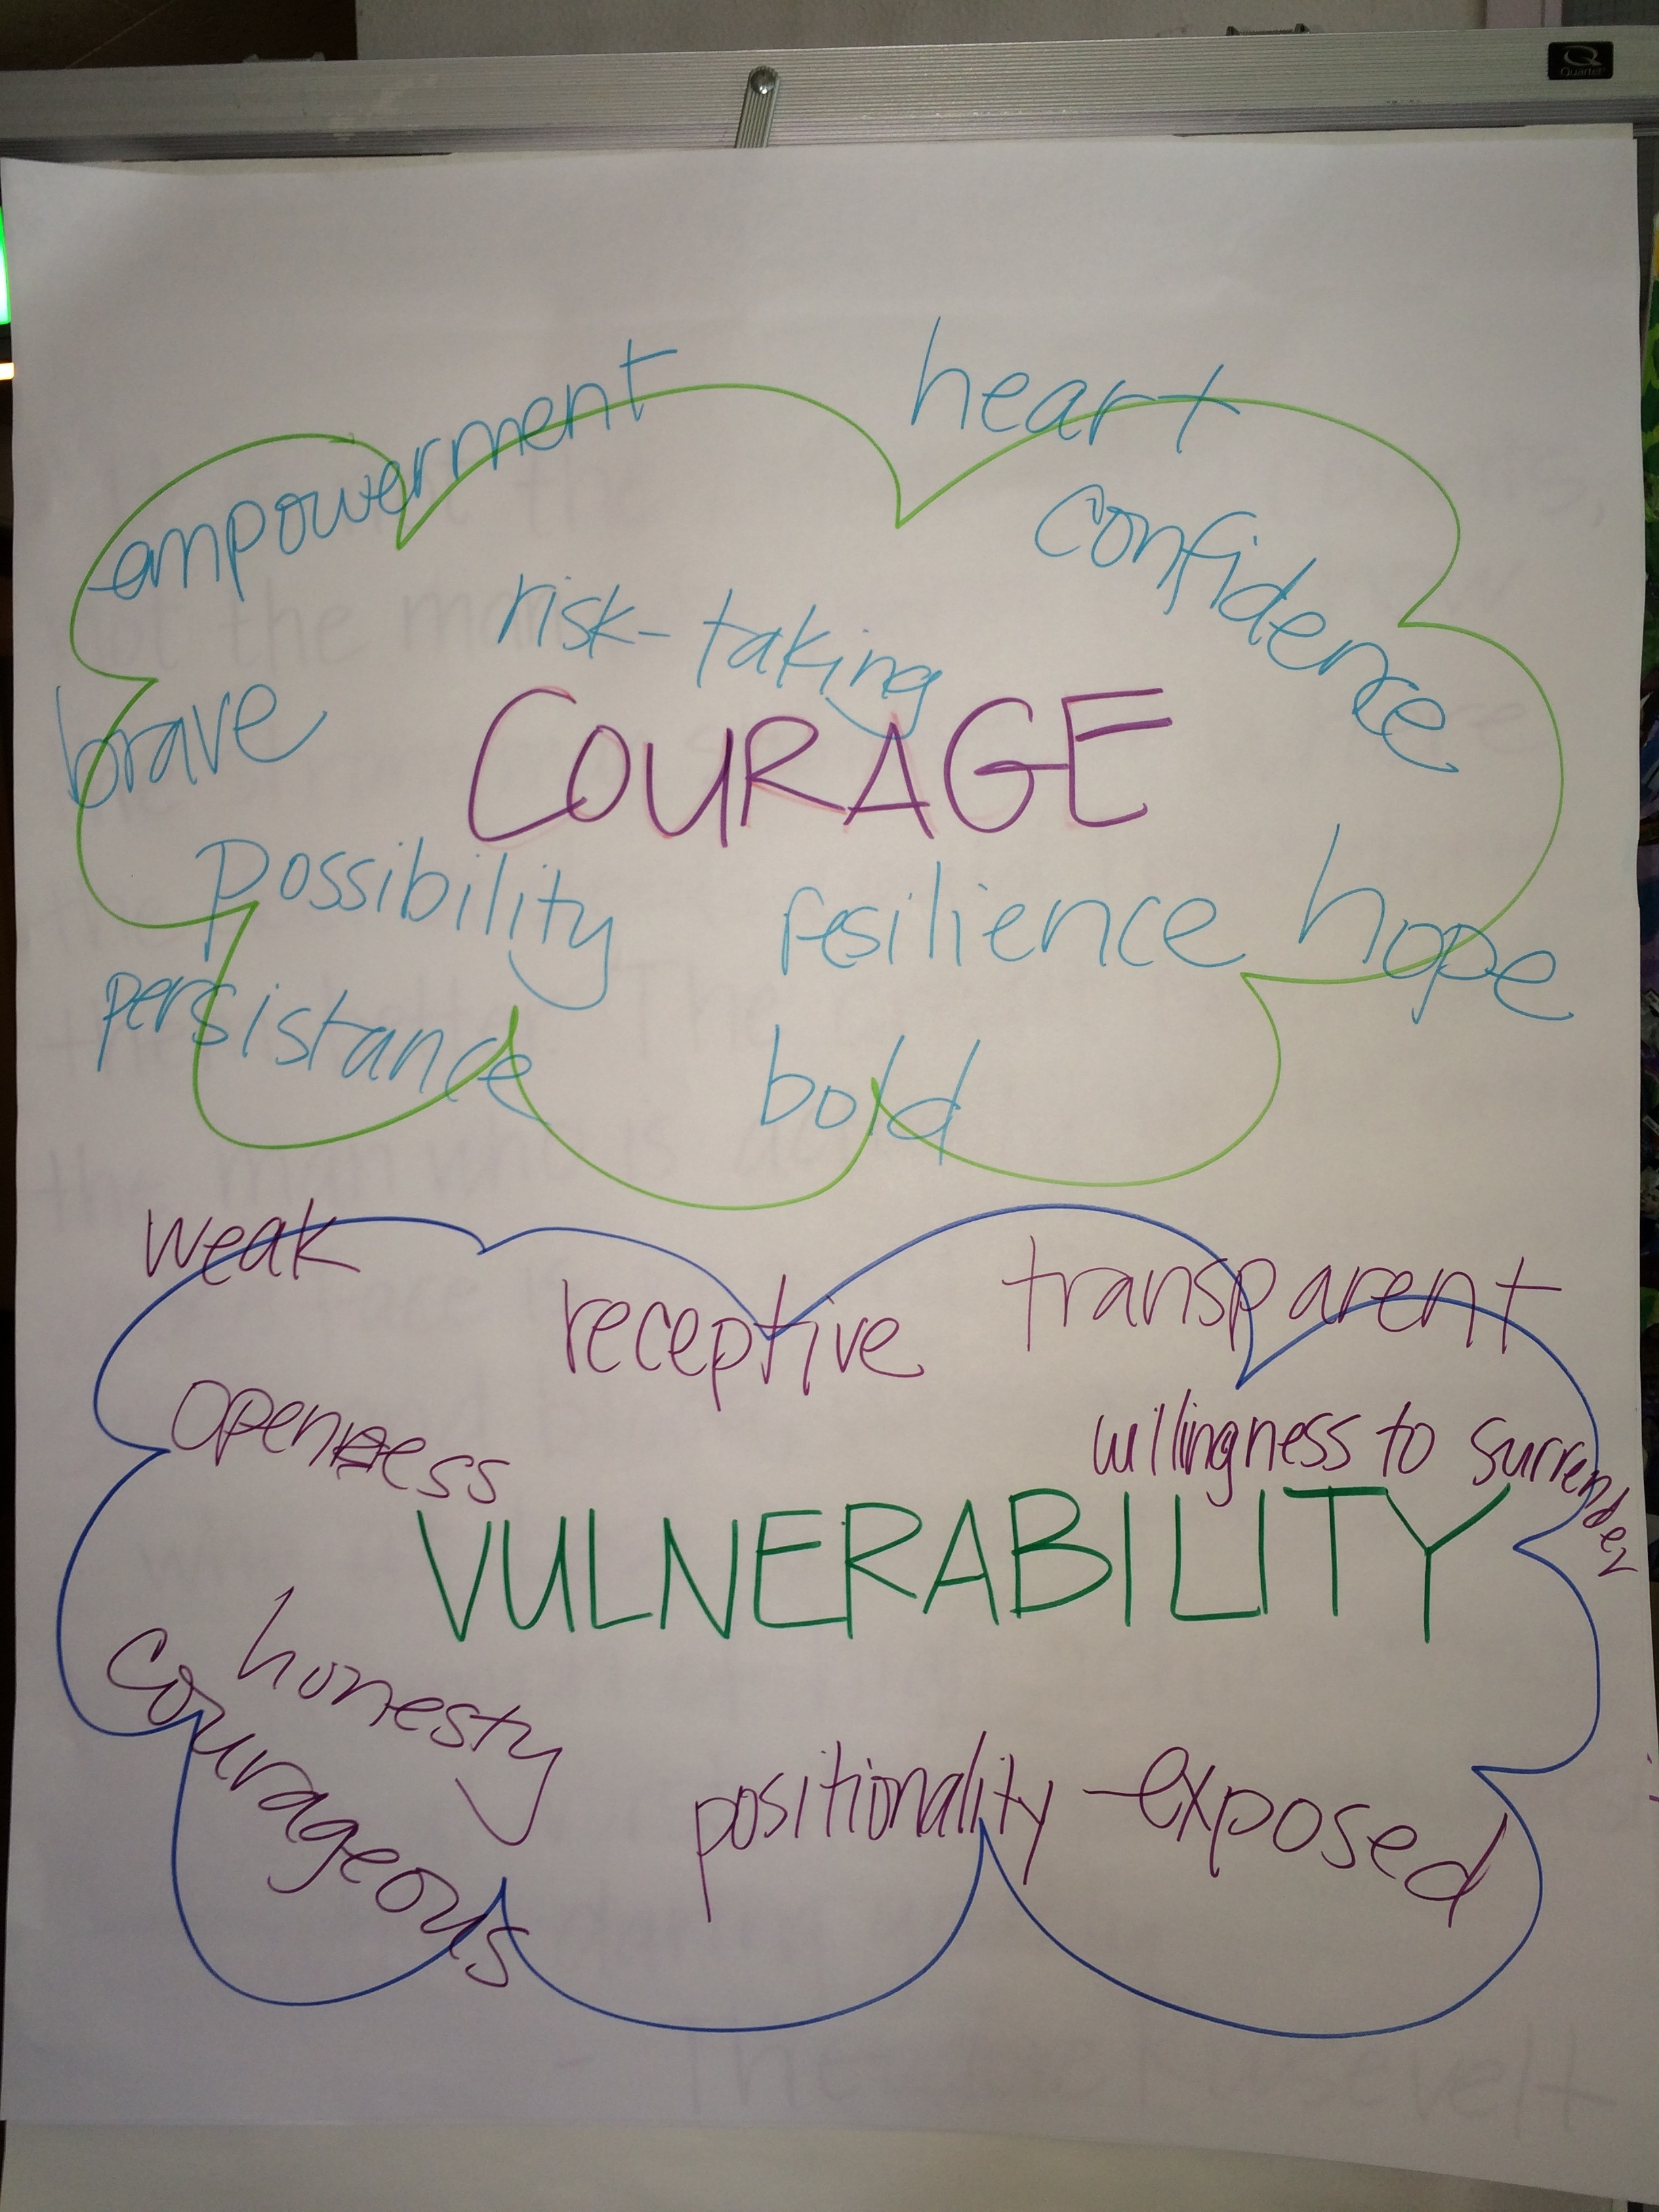 Quartet
empowerment
heart
confidence
risk-taking
brave
COURAGE
possibility
resilience
hope
persistance
bold
weak
receptive
transparent
openness
willingness to surrender
VULNERABILITY
honesty
courageous
positionality - exposed